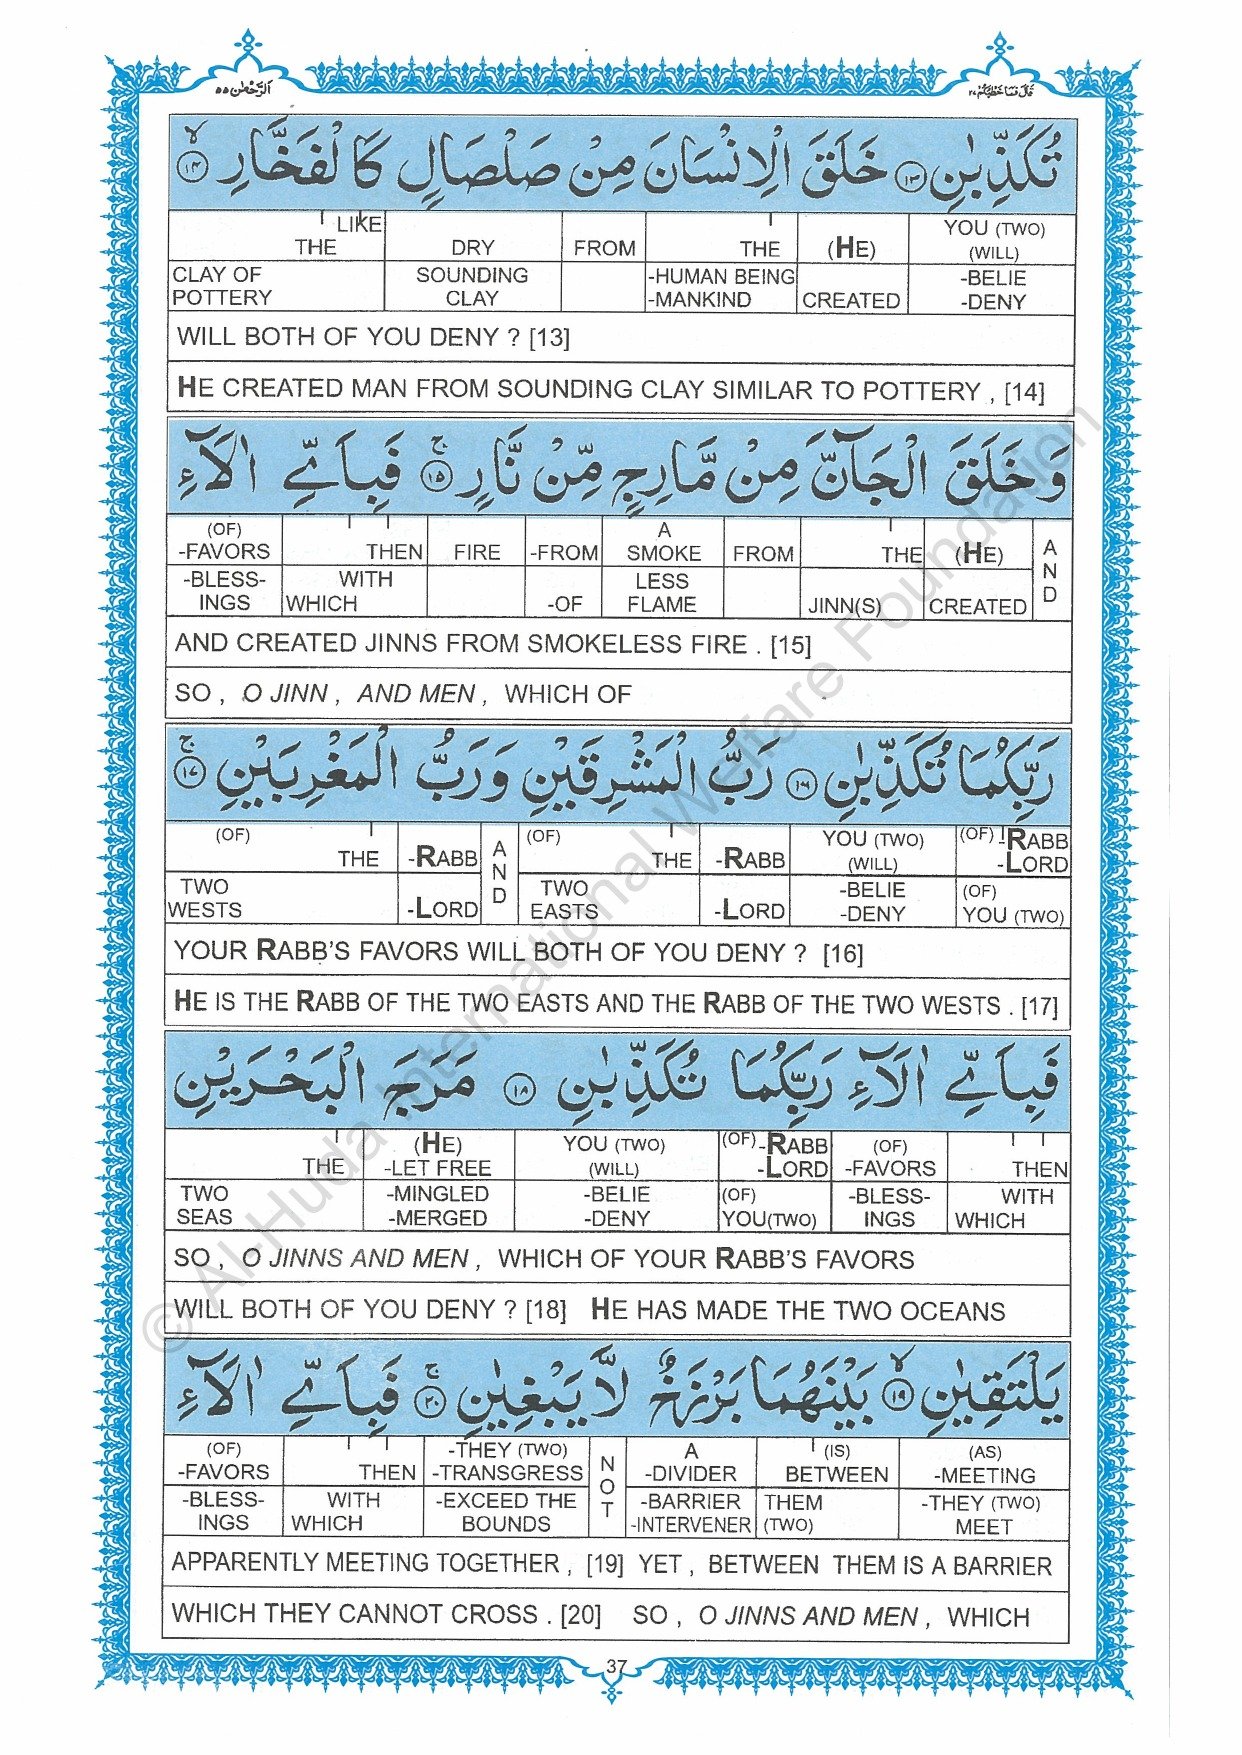 قَالَ فَمَا خَطْبُكُمْ ٢٧
اَلرَّحْمٰن ٥٥
تُكَذِّبٰنِ ١٣ خَلَقَ الْاِنْسَانَ مِنْ صَلْصَالٍ كَالْفَخَّارِ ١٤
LIKE YOU (TWO)
THE DRY FROM THE (HE) (WILL)
CLAY OF SOUNDING -HUMAN BEING -BELIE
POTTERY CLAY -MANKIND CREATED -DENY
WILL BOTH OF YOU DENY ? [13]
HE CREATED MAN FROM SOUNDING CLAY SIMILAR TO POTTERY , [14]
وَخَلَقَ الْجَآنَّ مِنْ مَّارِجٍ مِّنْ نَّارٍ ١٥ فَبِاَيِّ اٰلَآءِ
(OF) A
-FAVORS THEN FIRE -FROM SMOKE FROM THE (HE) AND
-BLESS- WITH LESS
INGS WHICH -OF FLAME JINN(S) CREATED
AND CREATED JINNS FROM SMOKELESS FIRE . [15]
SO , O JINN , AND MEN , WHICH OF
رَبِّكُمَا تُكَذِّبٰنِ ١٦ رَبُّ الْمَشْرِقَيْنِ وَرَبُّ الْمَغْرِبَيْنِ ١٧
(OF) (OF) YOU (TWO) (OF) -RABB
THE -RABB AND THE -RABB (WILL) -LORD
TWO TWO -BELIE (OF)
WESTS -LORD EASTS -LORD -DENY YOU (TWO)
YOUR RABB'S FAVORS WILL BOTH OF YOU DENY ? [16]
HE IS THE RABB OF THE TWO EASTS AND THE RABB OF THE TWO WESTS . [17]
فَبِاَيِّ اٰلَآءِ رَبِّكُمَا تُكَذِّبٰنِ ١٨ مَرَجَ الْبَحْرَيْنِ
(HE) YOU (TWO) (OF) -RABB (OF)
THE -LET FREE (WILL) -LORD -FAVORS THEN
TWO -MINGLED -BELIE (OF) -BLESS- WITH
SEAS -MERGED -DENY YOU(TWO) INGS WHICH
SO , O JINNS AND MEN , WHICH OF YOUR RABB'S FAVORS
WILL BOTH OF YOU DENY ? [18] HE HAS MADE THE TWO OCEANS
يَلْتَقِيٰنِ ١٩ بَيْنَهُمَا بَرْزَخٌ لَّا يَبْغِيٰنِ ٢٠ فَبِاَيِّ اٰلَآءِ
(OF) -THEY (TWO) A (IS) (AS)
-FAVORS THEN -TRANSGRESS NOT -DIVIDER BETWEEN -MEETING
-BLESS- WITH -EXCEED THE -BARRIER THEM -THEY (TWO)
INGS WHICH BOUNDS -INTERVENER (TWO) MEET
APPARENTLY MEETING TOGETHER , [19] YET , BETWEEN THEM IS A BARRIER
WHICH THEY CANNOT CROSS . [20] SO , O JINNS AND MEN , WHICH
37
© Al-Huda International Welfare Foundation